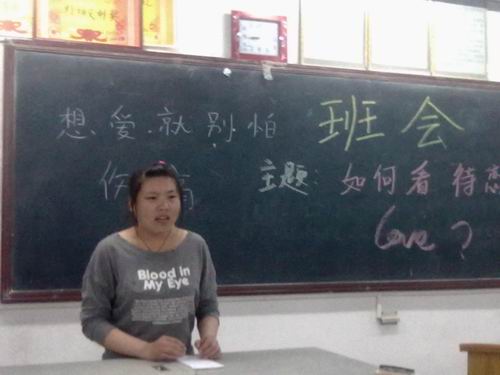 班会
想爱就别怕
伤痛
主题:如何看待高
Love?
Blood in
My Eye